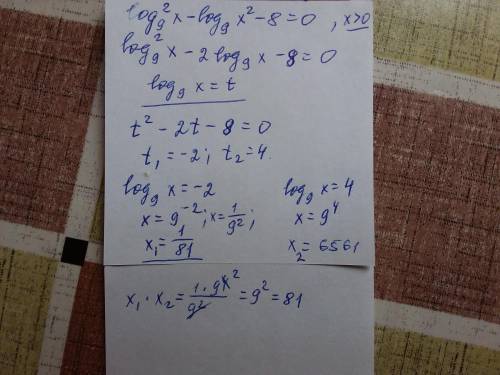 log₉²x - log₉x² - 8 = 0 , x>0
log₉²x - 2log₉x - 8 = 0
log₉x = t
t² - 2t - 8 = 0
t₁ = -2; t₂ = 4.
log₉x = -2 log₉x = 4
x = 9⁻²; x = 1/9²; x = 9⁴
x₁ = 1/81 x₂ = 6561
x₁ · x₂ = 1·9⁴ ²/9² = 9² = 81